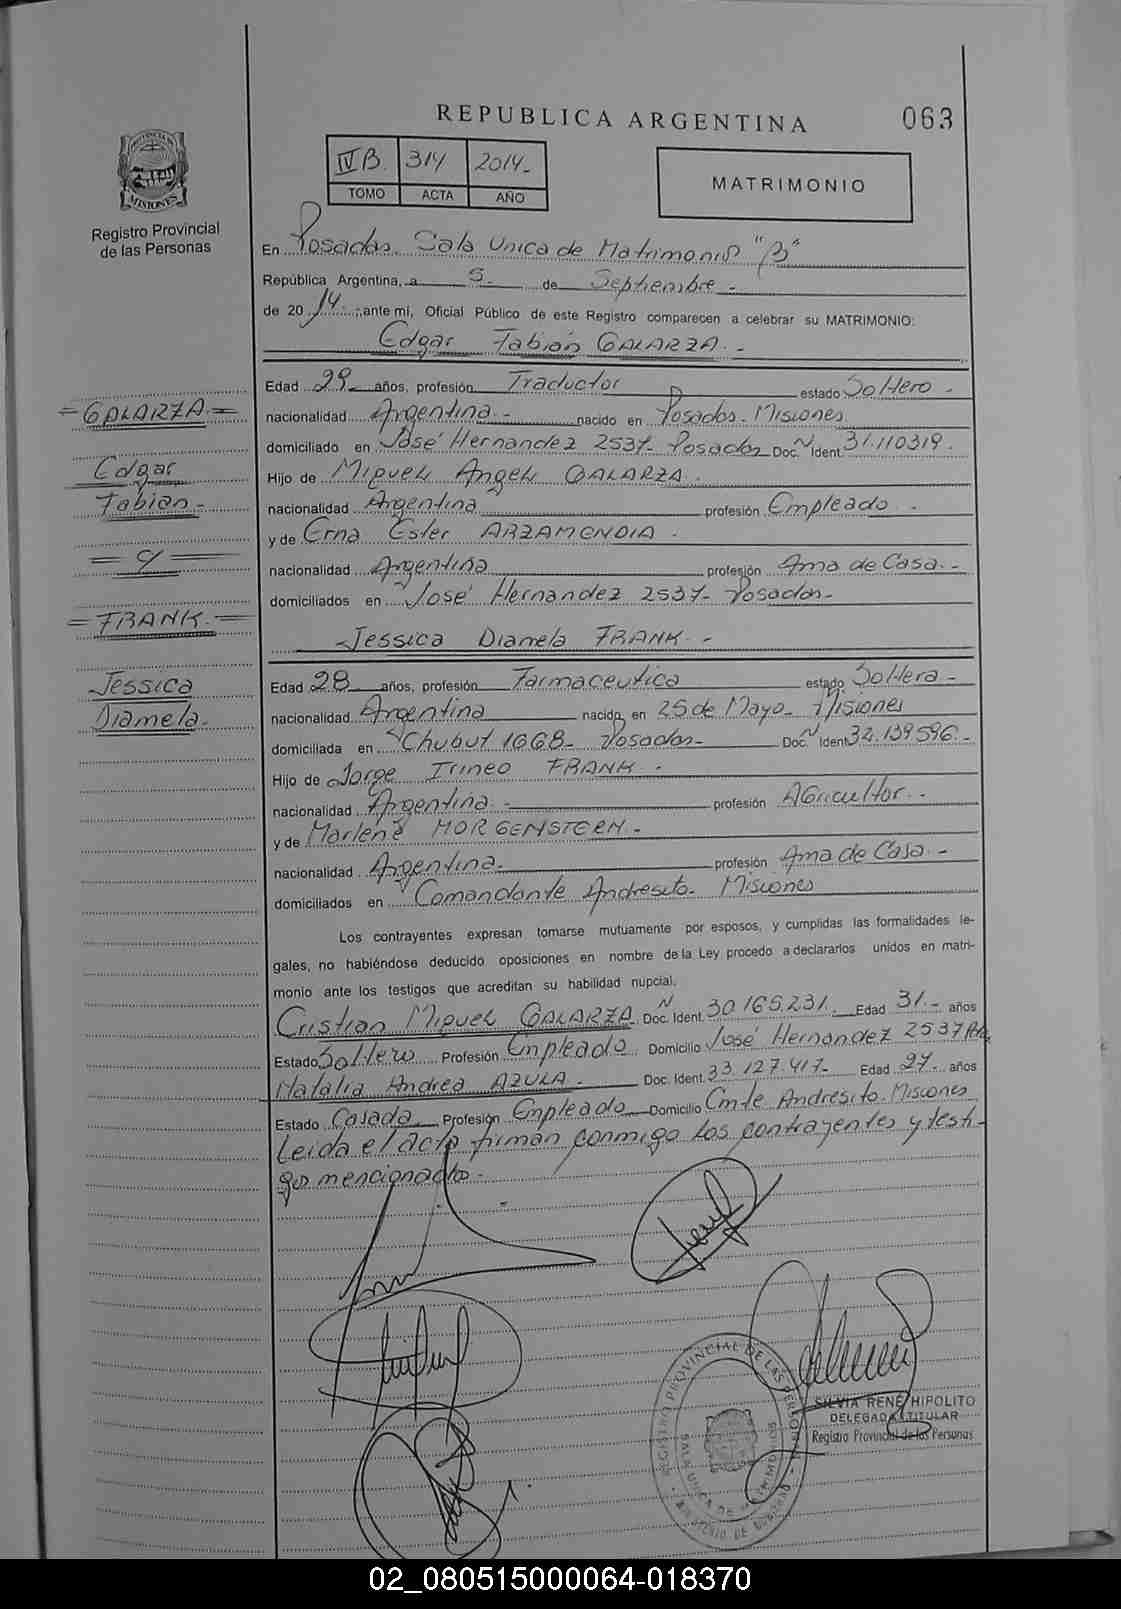 REPUBLICA ARGENTINA
063
PROVINCIA DE
MISIONES
Registro Provincial
de las Personas
IV B. 314 2014-
TOMO ACTA AÑO
MATRIMONIO
En Posadas. Sala Unica de Matrimonio "B"
República Argentina, a 5 de Septiembre -
de 20 14 ante mi, Oficial Público de este Registro comparecen a celebrar su MATRIMONIO:
Edgar Fabián GALARZA. -
Edad 29- años, profesión Traductor estado Soltero -
nacionalidad Argentina - nacido en Posadas. Misiones
domiciliado en José Hernandez 2537- Posadas Doc. N Ident. 31.110319.
Hijo de Miguel Angel GALARZA.
nacionalidad Argentina profesión Empleado -
y de Erna Ester ARZAMENDIA.
nacionalidad Argentina profesión Ama de Casa. -
domiciliados en José Hernandez 2537- Posadas-
Jessica Diamela FRANK. -
= GALARZA =
Edgar
Fabian -
= c/ =
= FRANK. =
Jessica
Diamela.
Edad 28- años, profesión Farmaceutica estado Soltera -
nacionalidad Argentina nacido en 25 de Mayo- Misiones
domiciliada en Chubut 1668- Posadas- Doc. N Ident 32.139596.-
Hijo de Jorge Irineo FRANK.
nacionalidad Argentina. - profesión Agricultor. -
y de Marlene MORGENSTERN. -
nacionalidad Argentina. profesión Ama de Casa -
domiciliados en Comandante Andresito- Misiones
Los contrayentes expresan tomarse mutuamente por esposos, y cumplidas las formalidades le-
gales, no habiéndose deducido oposiciones en nombre de la Ley procedo a declararlos unidos en matri-
monio ante los testigos que acreditan su habilidad nupcial.
Cristian Miguel GALARZA Doc. N Ident. 30.165.231. Edad 31.- años
Estado Soltero Profesión Empleado Domicilio José Hernandez 2537
Natalia Andrea AZULA. Doc. Ident. 33.127.417- Edad 27- años
Estado Casada Profesión Empleado Domicilio Cmte Andresito. Misiones
Leida el acta firman conmigo los contrayentes y testi-
gos mencionados.-
REGISTRO PROVINCIAL DE LAS PERSONAS
SALA UNICA DE MATRIMONIOS
SILVIA RENE HIPOLITO
DELEGADA TITULAR
Registro Provincial de las Personas
02_080515000064-018370